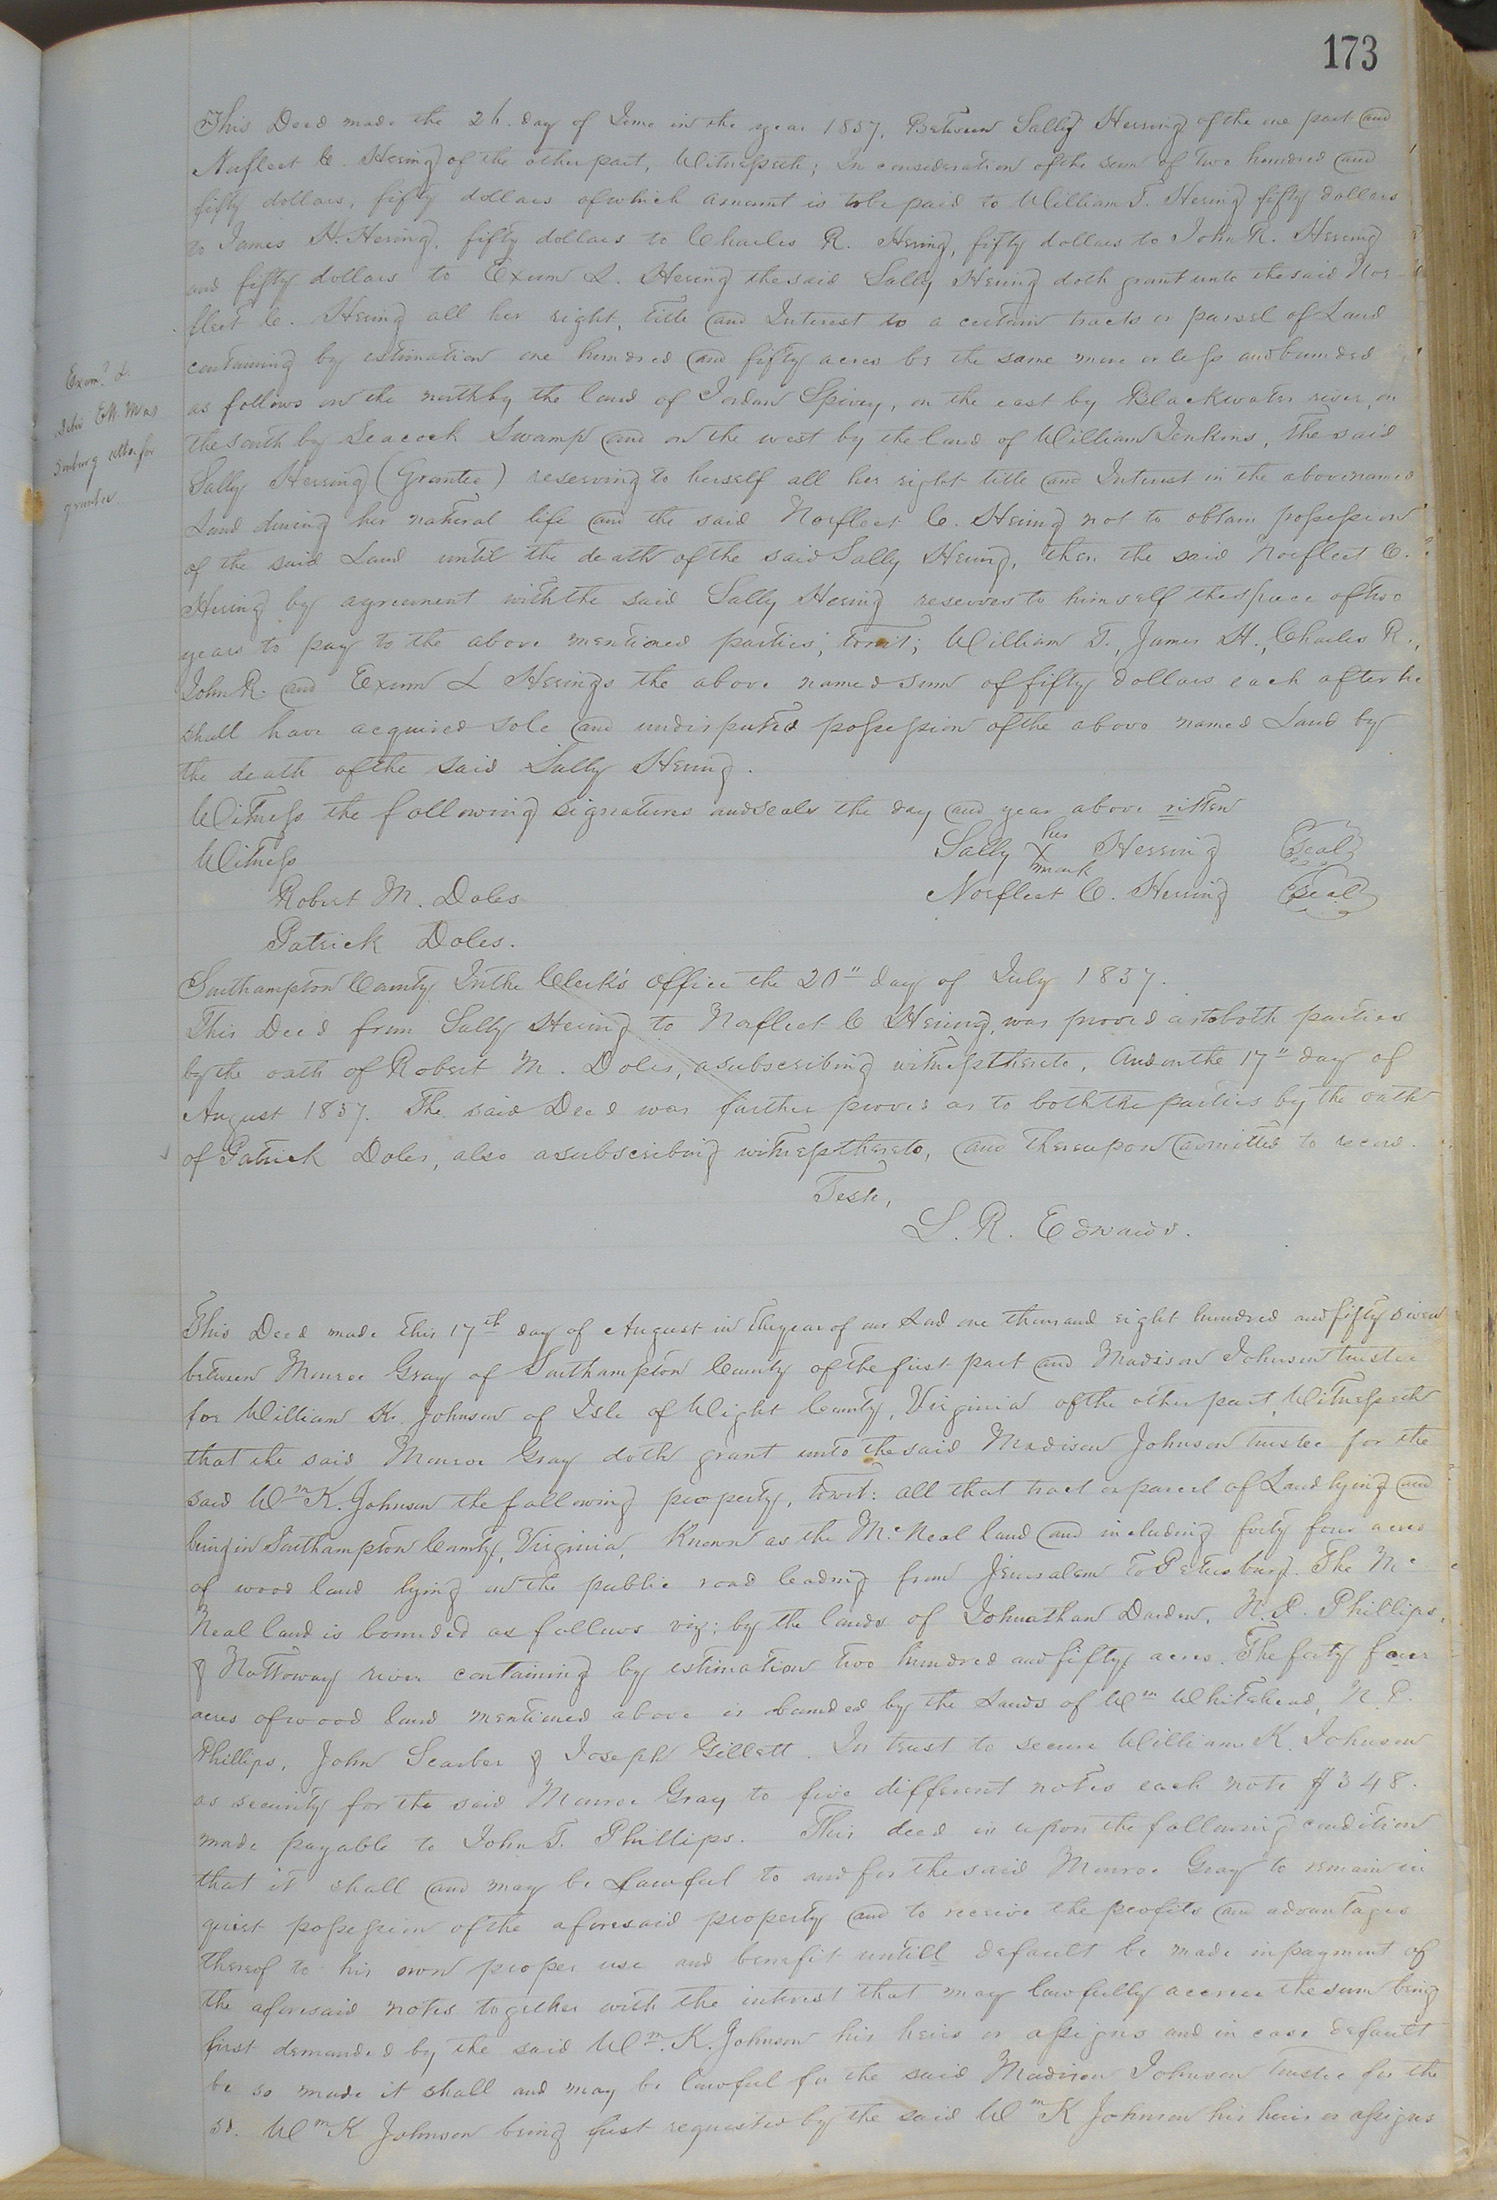 173
This Deed made the 2h. day of June in the year 1857. Between Sally Herring of the one part and
Norfleet C. Hering of the other part, Witnesseth; In consideration of the sum of two hundred and
fifty dollars, fifty dollars of which amount is to be paid to William T. Hering fifty dollars
to James H. Hering, fifty dollars to Charles R. Hering, fifty dollars to John R. Hering
and fifty dollars to Exum L. Hering the said Sally Hering doth grant unto the said Nor-
fleet C. Hering all her right, title and Interest to a certain tracts or parsel of Land
containing by estimation one hundred and fifty acres be the same more or less and bounded
as follows on the north by the land of Jordan Spivey, on the east by Blackwater river, on
the South by Seacock Swamp and on the west by the land of William Jenkins, The said
Sally Herring (Grantee) reserving to herself all her right title and Interest in the above named
Land during her natural life and the said Norfleet C. Hering not to obtain possession
of the said Land until the death of the said Sally Hering, then the said Norfleet C.
Hering by agreement with the said Sally Hering reserves to himself the space of two
years to pay to the above mentioned parties, towit; William T., James H., Charles R.,
John R. and Exum L Herings the above named sum of fifty dollars each after he
shall have acquired sole and undisputed possession of the above named Land by
the death of the said Sally Hering.
Witness the following signatures and seals the day and year above ritten
Witness
Sally her X mark Herring Seal
Robert M. Doles
Norfleet C. Herring Seal
Patrick Doles.
Exam.d &
Deliv E.W. Mas
senburg atto. for
grantee.
Southampton County In the Clerk's office the 20" day of July 1857.
This Deed from Sally Hering to Norfleet C Hering, was proved as to both parties
by the oath of Robert M. Doles, a subscribing witness thereto, And on the 17" day of
August 1857. The said Deed was further proved as to both the parties by the oath
of Patrick Doles, also a subscribing witness thereto, and thereupon admitted to record.
Teste,
L. R. Edwards.
This Deed made this 17th day of August in the year of our Lord one thousand eight hundred and fifty seven
between Monroe Gray of Southampton County of the first part and Madison Johnson trustee
for William K. Johnson of Isle of Wight County, Virginia of the other part, Witnesseth
that the said Monroe Gray doth grant unto the said Madison Johnson trustee for the
said Wm K. Johnson the following property, towit: all that tract or parcel of Land lying and
being in Southampton County, Virginia, Known as the Mc Neal land and including forty four acres
of wood land lying on the public road leading from Jerusalem to Petersburg. The Mc
Neal land is bounded as follows viz; by the lands of Johnathan Darden, N. P. Phillips,
& Nottoway river containing by estimation two hundred and fifty acres. The forty four
acres of wood land mentioned above is bounded by the Lands of Wm Whitehead, N. P.
Phillips, John Scarber & Joseph Gillett. In trust to secure William K. Johnson
as security for the said Monroe Gray to five different notes each note $348.
made payable to John T. Phillips. This deed is upon the following condition
that it shall and may be Lawful to and for the said Monroe Gray to remain in
quiet possession of the aforesaid property and to receive the profits and advantages
thereof to his own proper use and benefit untill default be made in payment of
the aforesaid notes together with the interest that may lawfully accrue the sum being
first demanded by the said Wm. K. Johnson his heirs or assigns and in case default
be so made it shall and may be lawful for the said Madison Johnson trustee for the
sd. Wm K Johnson being first requested by the said Wm K Johnson his heirs or assigns